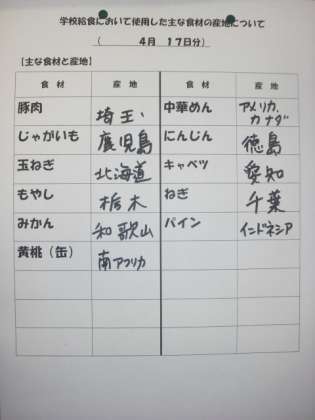 学校給食において使用した主な食材の産地について
( 4月 17日分)
【主な食材と産地】
食 材 産 地 食 材 産 地
豚肉 埼玉、 中華めん アメリカ、カナダ
じゃがいも 鹿児島 にんじん 徳島
玉ねぎ 北海道 キャベツ 愛知
もやし 栃木 ねぎ 千葉
みかん 和歌山 パイン インドネシア
黄桃（缶） 南アフリカ